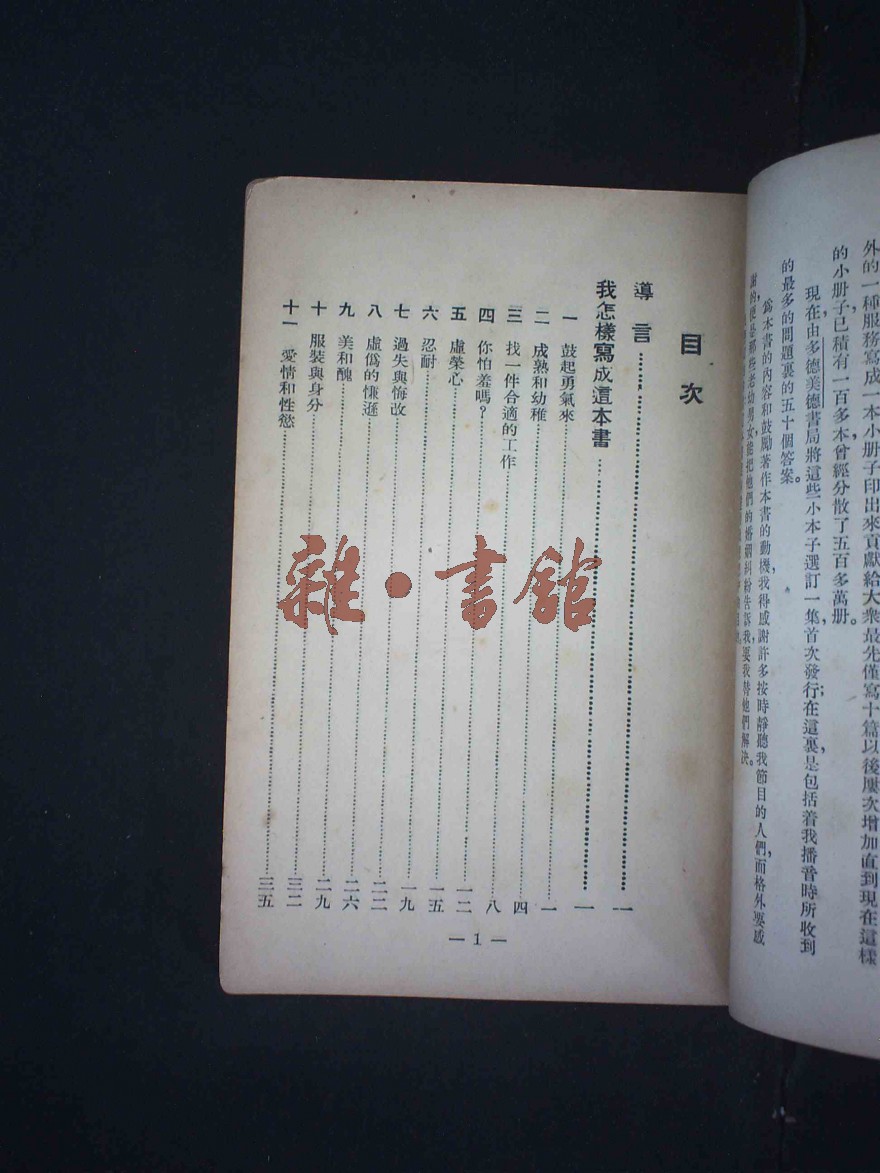 外的一種服務寫成一本小册子印出來貢獻給大衆最先僅寫十篇以後屢次增加直到現在這樣
的小册子，已積有一百多本曾經分散了五百多萬册。
現在由多德美德書局將這些小本子選訂一集，首次發行；在這裏，是包括着我播音時所收到
的最多的問題裏的五十個答案。
爲本書的內容和鼓勵著作本書的動機，我得感謝許多按時靜聽我節目的人們，而格外要感
謝的，便是那些老幼男女能把他們的婚姻糾紛告訴我，要我替他們解決。
目次
導言……一
我怎樣寫成這本書……一
一 鼓起勇氣來……一
二 成熟和幼稚……四
三 找一件合適的工作……八
四 你怕羞嗎？……一二
五 虛榮心……一五
六 忍耐……一九
七 過失與悔改……二二
八 虛僞的慊遜……二六
九 美和醜……二九
十 服裝與身分……三二
十一 愛情和性慾……三五
—1—
雜·書館